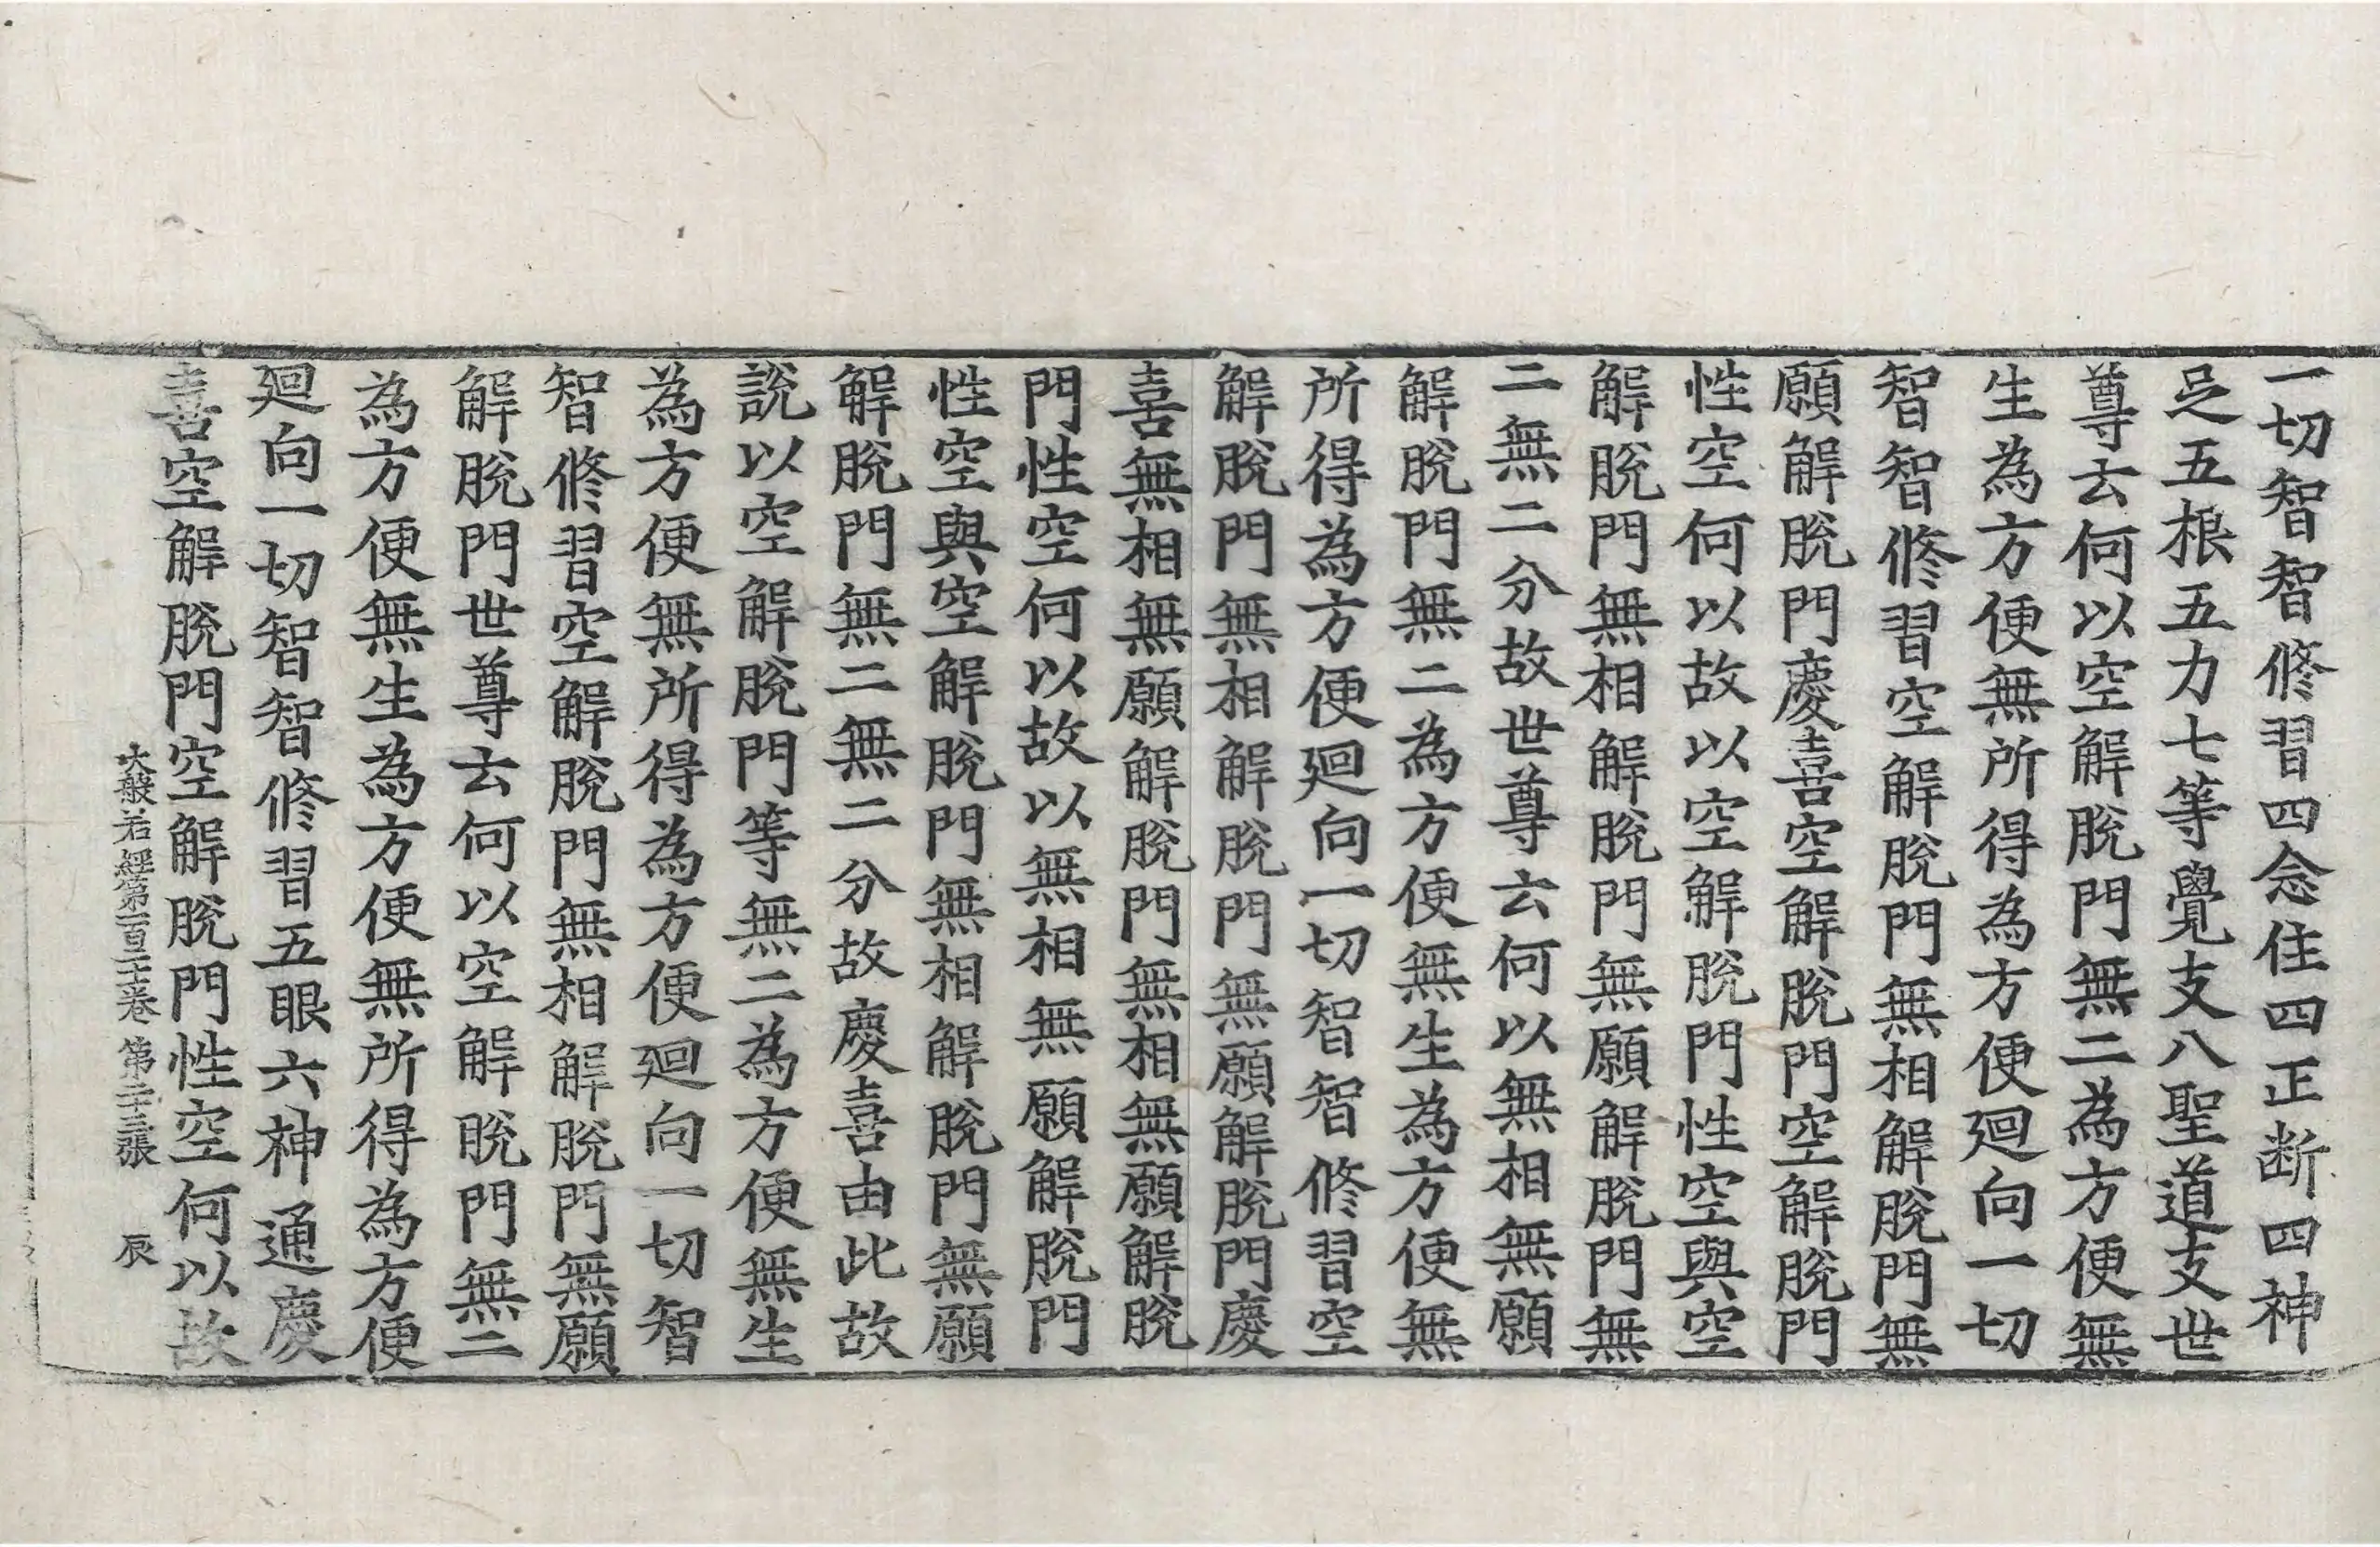 一切智智修習四念住四正断四神
足五根五力七等覺支八聖道支世
尊云何以空解脫門無二為方便無
生為方便無所得為方便迴向一切
智智修習空解脫門無相解脫門無
願解脫門慶喜空解脫門空解脫門
性空何以故以空解脫門性空與空
解脫門無相解脫門無願解脫門無
二無二分故世尊云何以無相無願
解脫門無二為方便無生為方便無
所得為方便迴向一切智智修習空
解脫門無相解脫門無願解脫門慶
喜無相無願解脫門無相無願解脫
門性空何以故以無相無願解脫門
性空與空解脫門無相解脫門無願
解脫門無二無二分故慶喜由此故
說以空解脫門等無二為方便無生
為方便無所得為方便迴向一切智
智修習空解脫門無相解脫門無願
解脫門世尊云何以空解脫門無二
為方便無生為方便無所得為方便
迴向一切智智修習五眼六神通慶
喜空解脫門空解脫門性空何以故
大般若經第一百二十一卷 第二十三張 辰